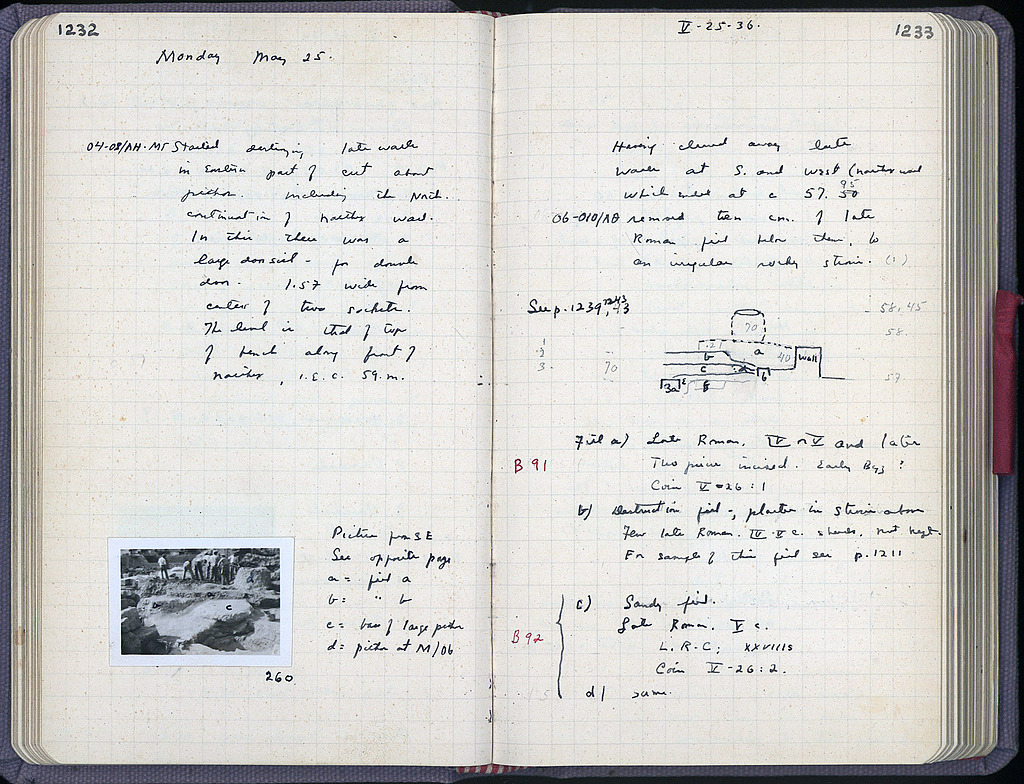 1232
Monday May 25.
04-08/AH-MΓ Started destroying late walls
in Eastern part of cut about
pithos. including the North.
continuation of narthex wall.
In this there was a
large doorsill - for double
door. 1.57 wide from
center of two sockets.
The level is that of top
of bench along front of
narthex, i.e. c. 59. m.
Picture from SE
See opposite page
a = fill a
b = " b
c = base of large pithos
d = pithos at M/06
260
V-25-36.
1233
Having cleared away late
walls at S. and west (narthex wall
which ended at c 57.
95
50
06-010/ΛΘ removed ten cm. of late
Roman fill below them, to
an irregular rocky strosis. (1)
See p. 1239, 1243
58,45
58.
70
.21
a
1
2
3
70
b
40
wall
c
d
b
57
3a
Fill a) Late Roman. IV or V and later
Two pieces incised. Early
B 91
Coin V-26:1
b) Destruction fill -, plaster in strosis above
Few late Roman. IV-V c. sherds, not kept.
For sample of this fill see p. 1211
c) Sandy fill.
Late Roman. V c.
B 92
L.R.C;
Coin V-26:2.
d) same.